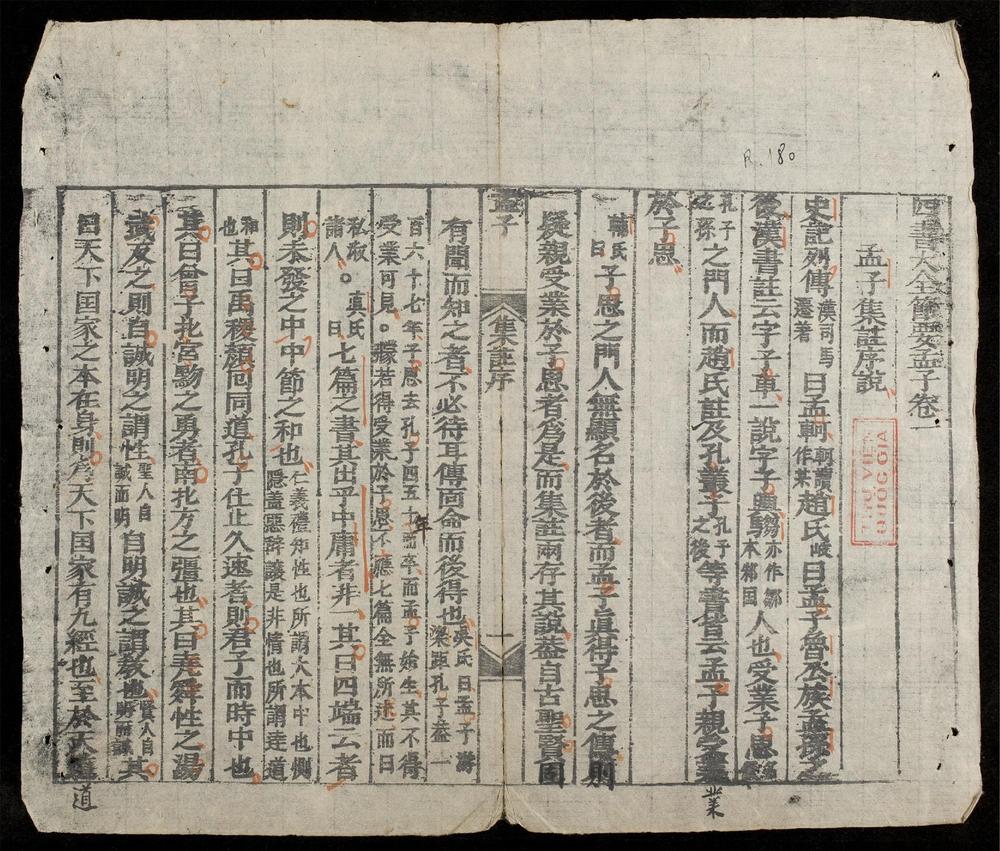 R. 180
四書大全節要孟子卷一
孟子集註序說
THƯ VIỆN
QUỐC GIA
史記列傳漢司馬遷著曰孟軻軻讀作某趙氏岐曰孟子魯公族孟孫之
後漢書註云字子車一說字子輿騶騶亦作鄒本邾国人也受業子思
孔子之孫之門人而趙氏註及孔叢子孔子之後等書皆云孟子親受業
業
於子思
韓氏曰子思之門人無顯名於後者而孟子眞得子思之傳則
疑親受業於子思者爲是而集註兩存其說盖自古聖賢固
孟子
集註序
一
有聞而知之者不必待耳傳面命而後得也吳氏曰孟子游梁距孔子盖一
百六十七年子思去孔子四五十年而卒而孟子始生其不得
受業可見。驟若得受業於子思不應七篇全無所述而曰
私取諸人。真氏曰七篇之書其出乎中庸者非一其曰四端云者
則未發之中中節之和也仁義禮知性也所謂大本中也惻隱羞惡辞讓是非情也所謂達道
和也其曰禹稷顔囘同道孔子仕止久速者則君子而時中也
其曰曾子北宮黝之勇者南北方之彊也其曰堯舜性之湯
武反之則自誠明之謂性聖人自誠而明自明誠之謂教也賢人自明而誠其
曰天下国家之本在身則爲天下国家有九經也至於天道
道